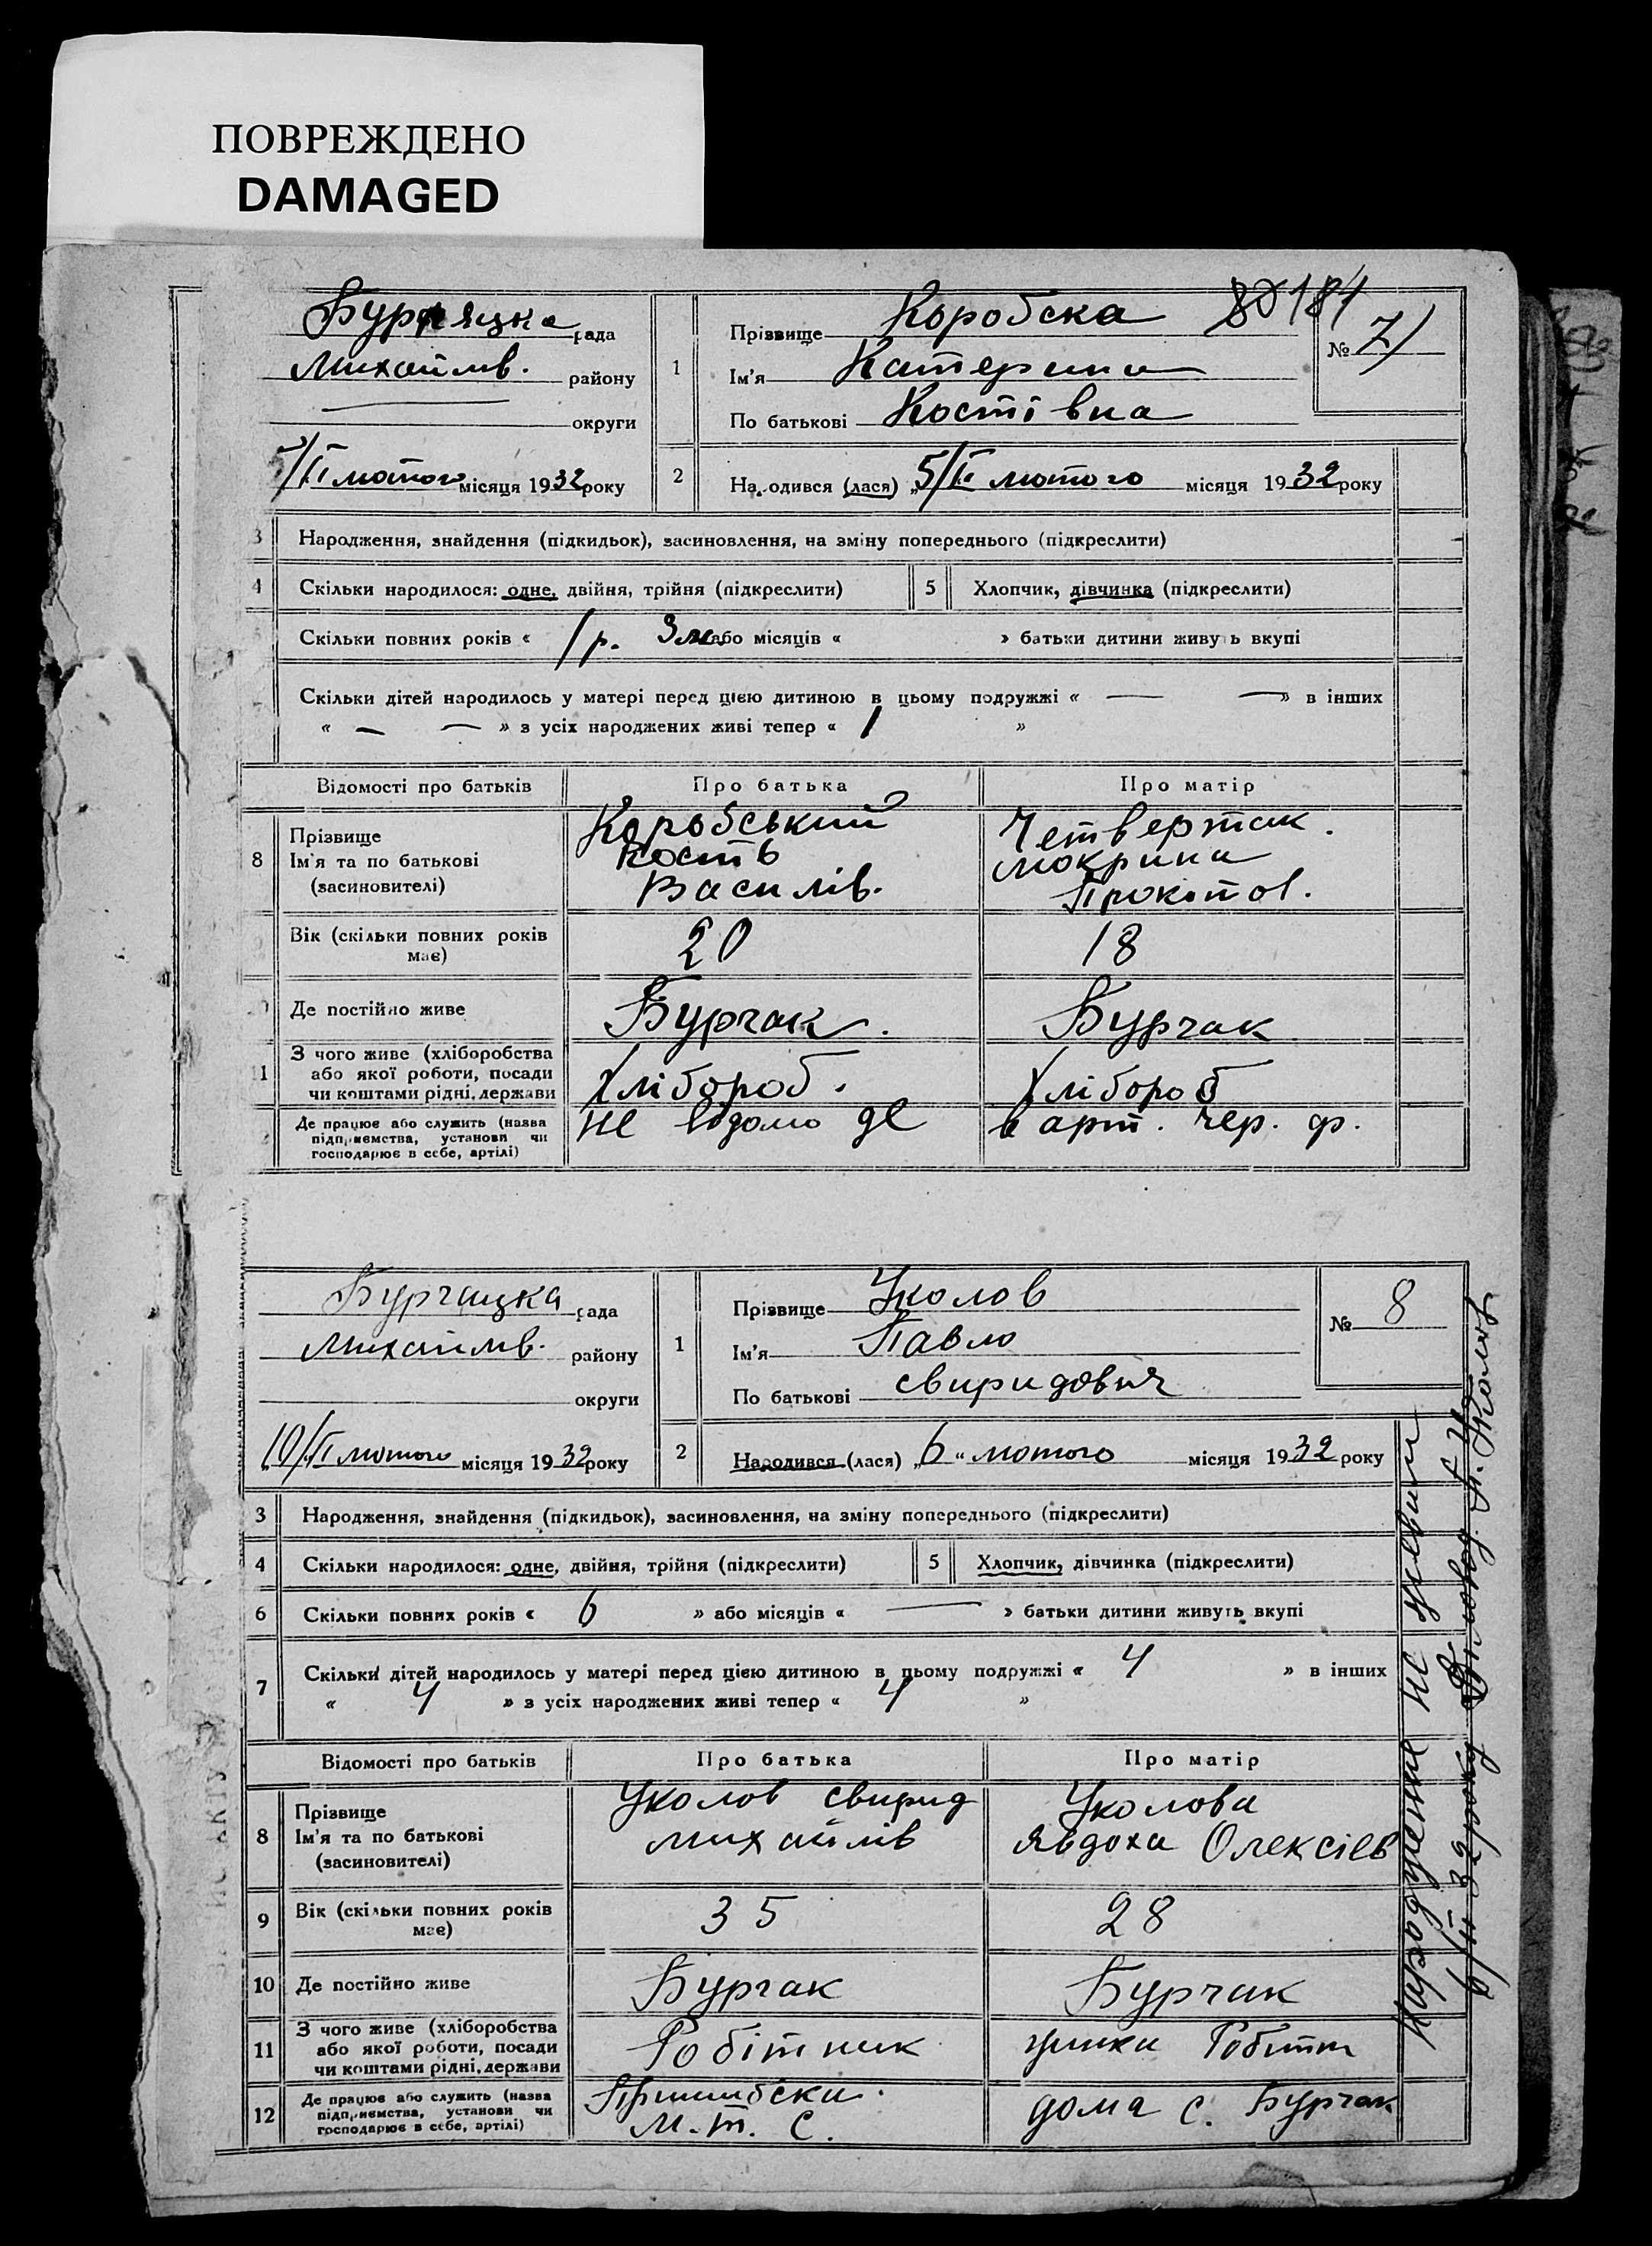 ПОВРЕЖДЕНО
DAMAGED
рада
Михайлів. району
округи
1
Прізвище Коробска
Ім'я Катерина
По батькові Костівна
184
№ 7
5/ІІ лютого місяця 1932 року
2
На одився (лася) „5/ІІ лютого місяця 1932 року
3 Народження, знайдення (підкидьок), засиновлення, на зміну попереднього (підкреслити)
4 Скільки народилося: одне, двійня, трійня (підкреслити)
5 Хлопчик, дівчинка (підкреслити)
Скільки повних років « 1 р. 3 м. або місяців « » батьки дитини живуть вкупі
Скільки дітей народилось у матері перед цією дитиною в цьому подружжі « — — » в інших
« — — » з усіх народжених живі тепер « 1 »
Відомості про батьків
Про батька
Про матір
8
Прізвище
Ім'я та по батькові
(засиновителі)
Коробський
Кость
Василів.
Четвертак.
Мокрина
Вік (скільки повних років
має)
20
18
Де постійно живе
Бурчак.
Бурчак
11
З чого живе (хліборобства
або якої роботи, посади
чи коштами рідні, держави
Хлібороб.
Хлібороб
Де працює або служить (назва
підприємства, установи чи
господарює в себе, артілі)
не відомо де
в арт. чер. ф.
Бурчацка рада
Михайлів. району
округи
1
Прізвище Уколов
Ім'я Павло
По батькові Свиридович
№ 8
„10/ІІ лютого місяця 1932 року
2
Народився (лася) „6“ лютого місяця 1932 року
3 Народження, знайдення (підкидьок), засиновлення, на зміну попереднього (підкреслити)
4 Скільки народилося: одне, двійня, трійня (підкреслити)
5 Хлопчик, дівчинка (підкреслити)
6 Скільки повних років « 6 » або місяців « — » батьки дитини живуть вкупі
7 Скільки дітей народилось у матері перед цією дитиною в цьому подружжі « 4 » в інших
« 4 » з усіх народжених живі тепер « 4 »
Відомості про батьків
Про батька
Про матір
8
Прізвище
Ім'я та по батькові
(засиновителі)
Уколов Свирид
Михайлів
Уколова
Явдоха Олексієв
9
Вік (скільки повних років
має)
35
28
10
Де постійно живе
Бурчак
Бурчак
11
З чого живе (хліборобства
або якої роботи, посади
чи коштами рідні, держави
Робітник
12
Де працює або служить (назва
підприємства, установи чи
господарює в себе, артілі)
М. т. С.
дома с. Бурчак
Народжене не живим
6/ІІ 32 року Діловод.